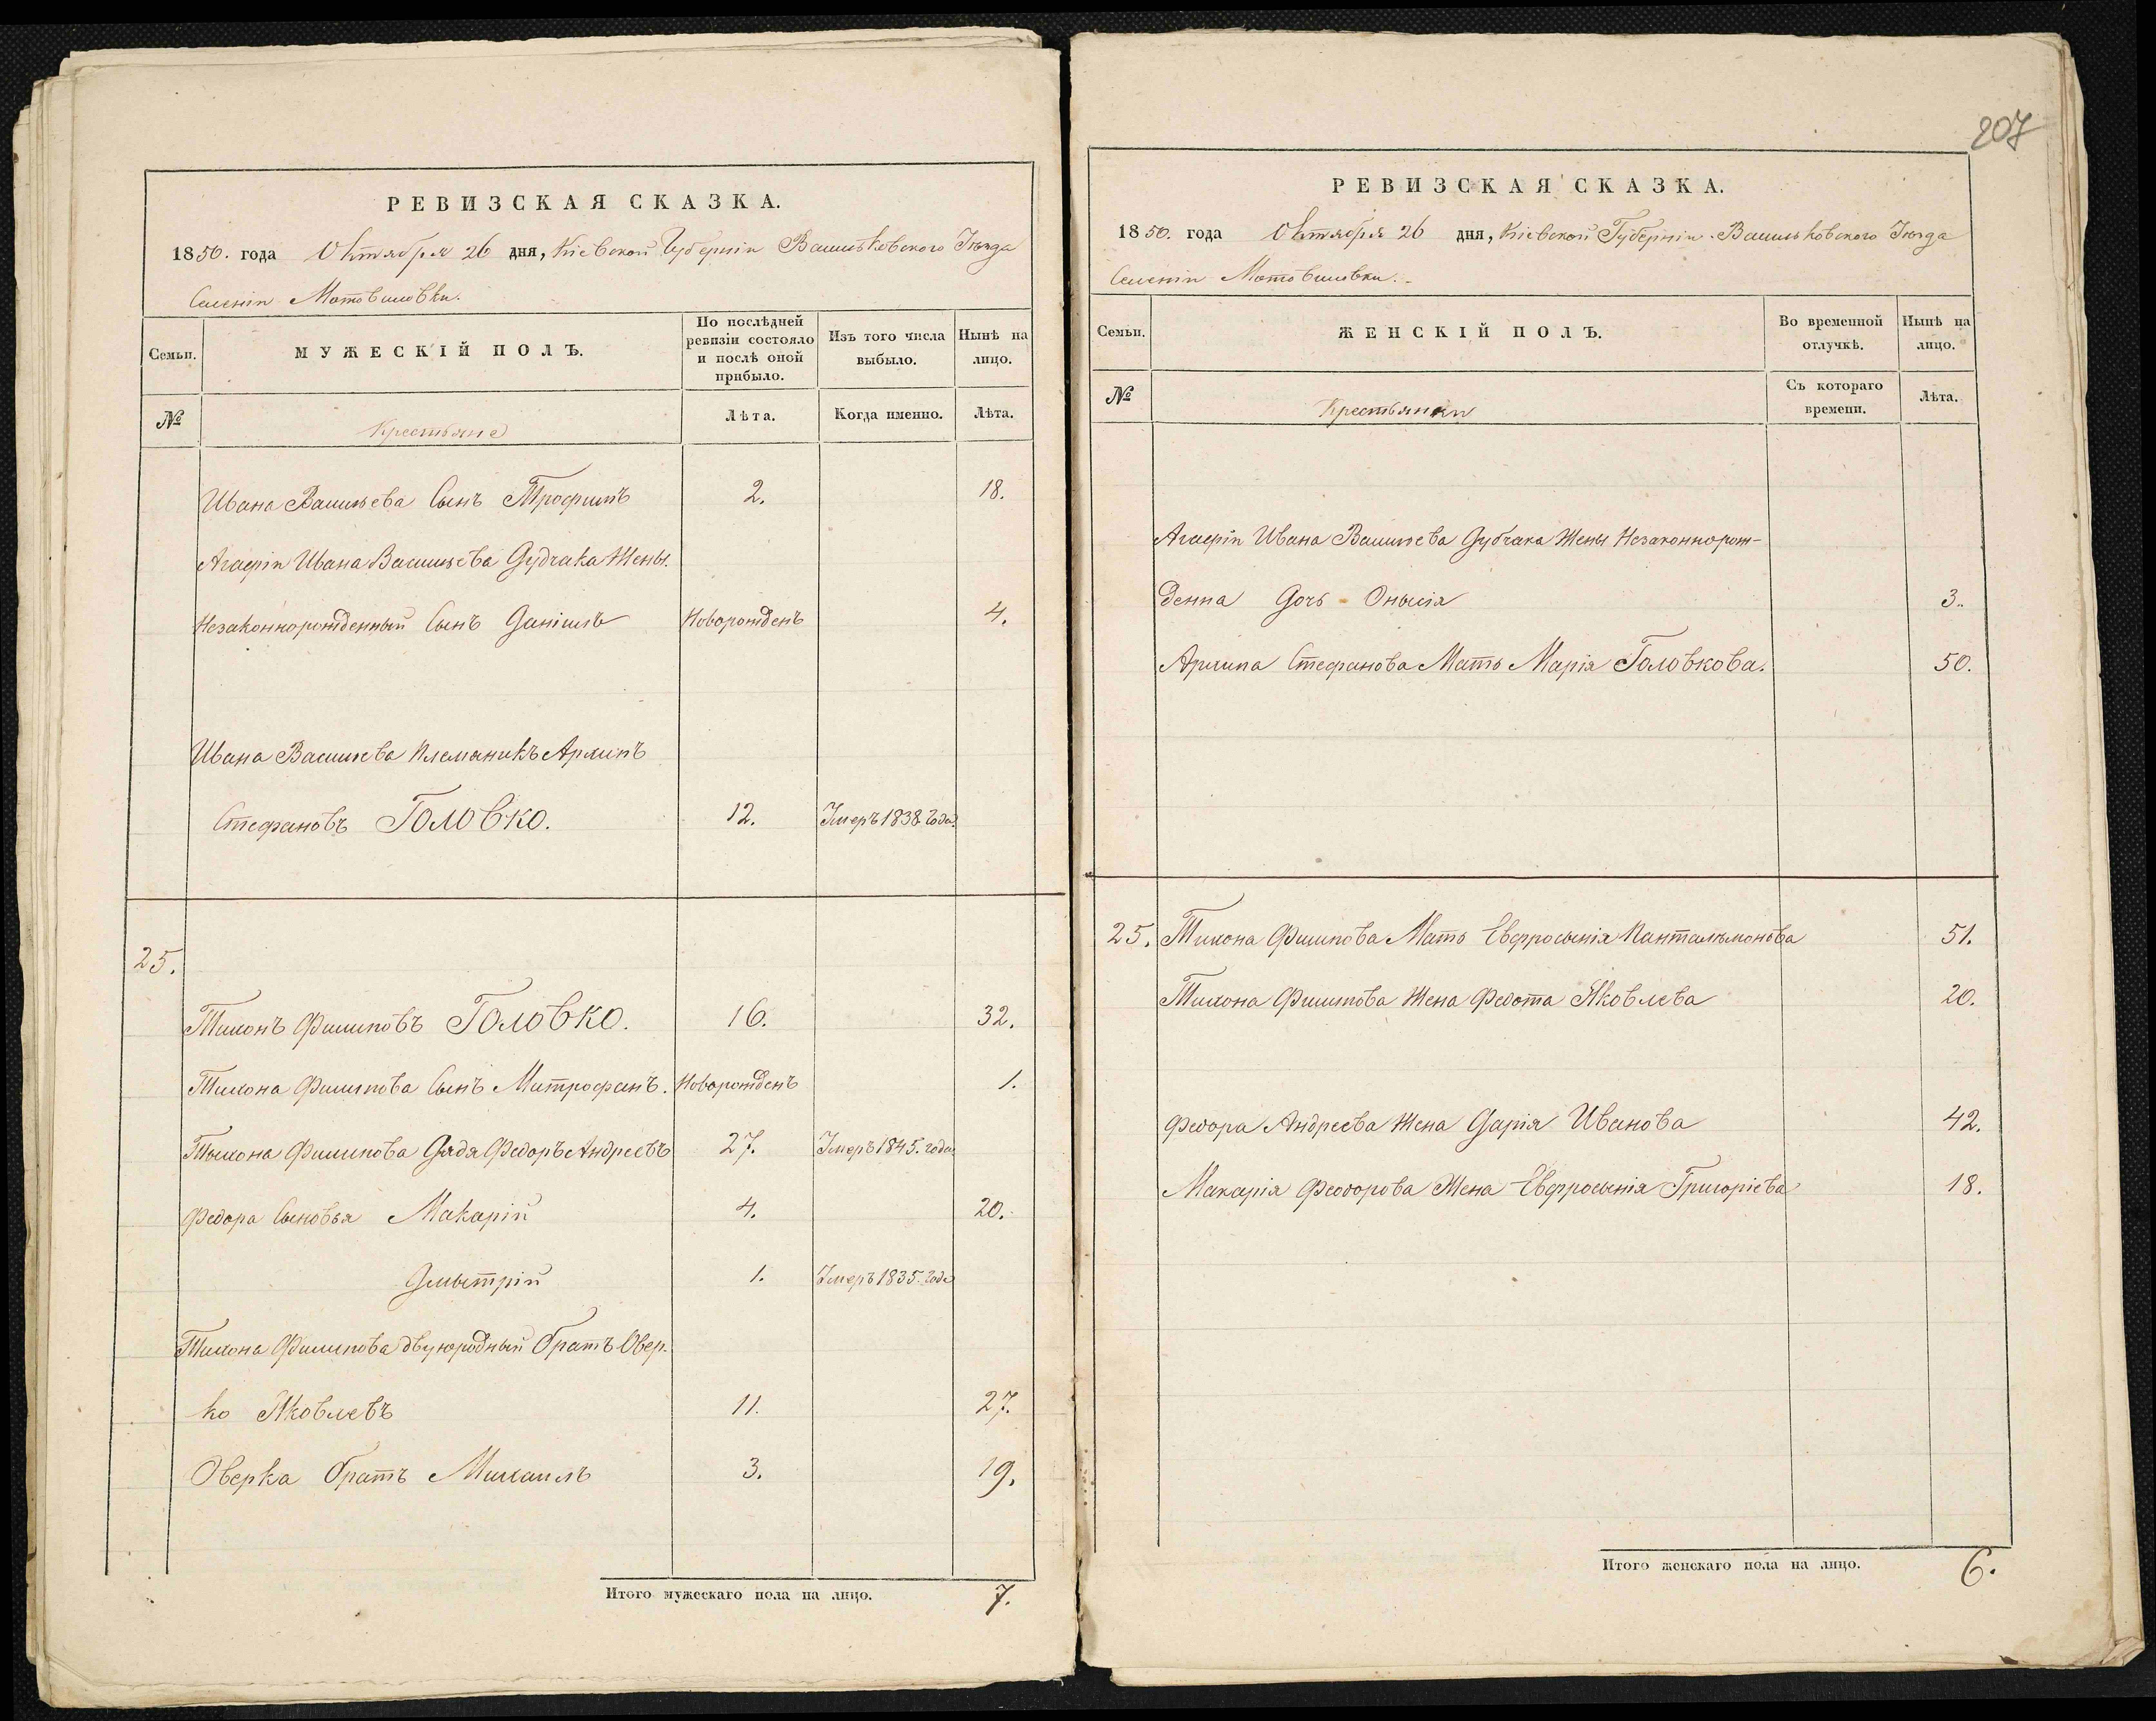 РЕВИЗСКАЯ СКАЗКА.
1850. года Октября 26 дня, Кіевской Губерніи Васильковского Уѣзда
Селенія Мотовиловки.
Семьи.
МУЖЕСКІЙ ПОЛЪ.
По послѣдней ревизіи состояло и послѣ оной прибыло.
Изъ того числа выбыло.
Нынѣ на лицо.
№
Крестьяне
Лѣта.
Когда именно.
Лѣта.
Ивана Васильева Сынъ Трофимъ 2. 18.
Агафіи Ивана Васильева Дудчака Жены.
Незаконнорожденный Сынъ Даніилъ Новорожденъ 4.
Ивана Васильева Племяникъ Архипъ
Стефановъ Головко. 12. Умеръ 1838 года.
25.
Тихонъ Филиповъ Головко. 16. 32.
Тихона Филипова Сынъ Митрофанъ. Новорожденъ 1.
Тихона Филипова Дядя Федоръ Андреевъ 27. Умеръ 1845. года
Федора Сыновья Макарій 4. 20.
Дмытрій 1. Умеръ 1835. года
Тихона Филипова двуюродный братъ Овер-
ко Яковлевъ 11. 27.
Оверка братъ Михаилъ 3. 19.
Итого мужескаго пола на лицо. 7.
207
РЕВИЗСКАЯ СКАЗКА.
1850. года Октября 26 дня, Кіевской Губерніи Васильковского Уѣзда
Селенія Мотовиловки.
Семьи.
ЖЕНСКІЙ ПОЛЪ.
Во временной отлучкѣ.
Нынѣ на лицо.
№
Крестьянки
Съ котораго времени.
Лѣта.
Агафіи Ивана Васильева Дубчака Жены Незаконнорож-
денна Дочь Онысія 3.
Архипа Стефанова Мать Марія Головкова. 50.
25. Тихона Филипова Мать Евфросынія Пантелымонова 51.
Тихона Филипова Жена Федота Яковлева 20.
Федора Андреева Жена Дарія Иванова 42.
Макарія Феодорова Жена Евфросынія Григоріева 18.
Итого женскаго пола на лицо. 6.